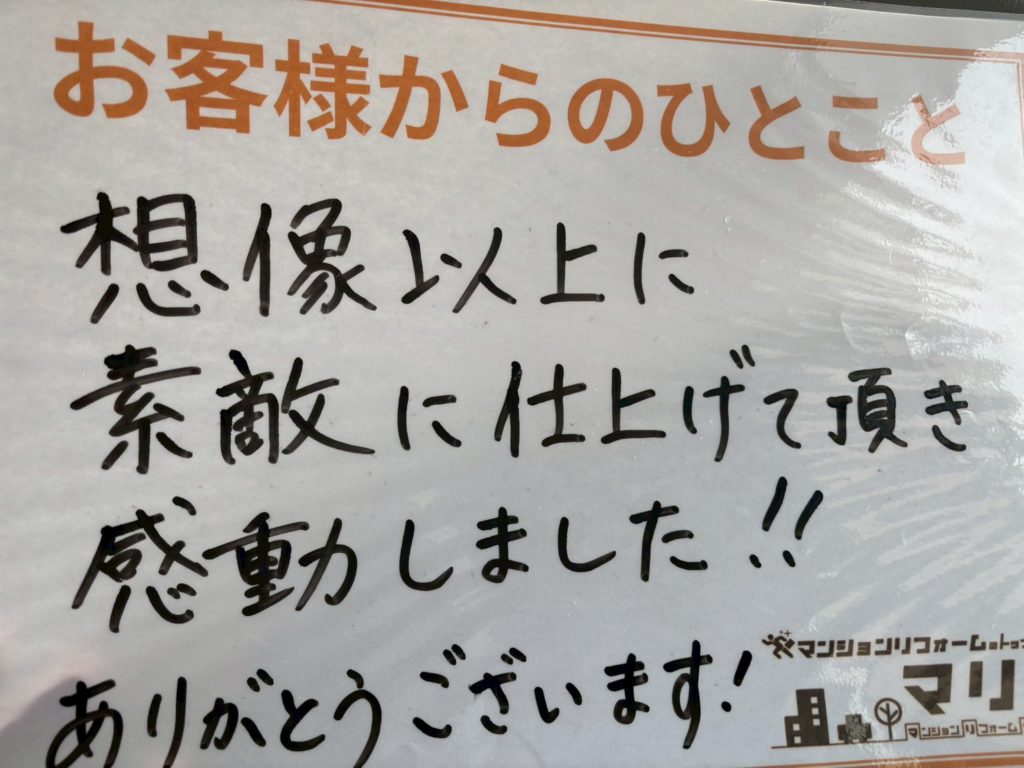 お客様からのひとこと
想像以上に
素敵に仕上げて頂き
感動しました!!
ありがとうございます!
マンションリフォームのトッ
マリ
マンションリフォーム